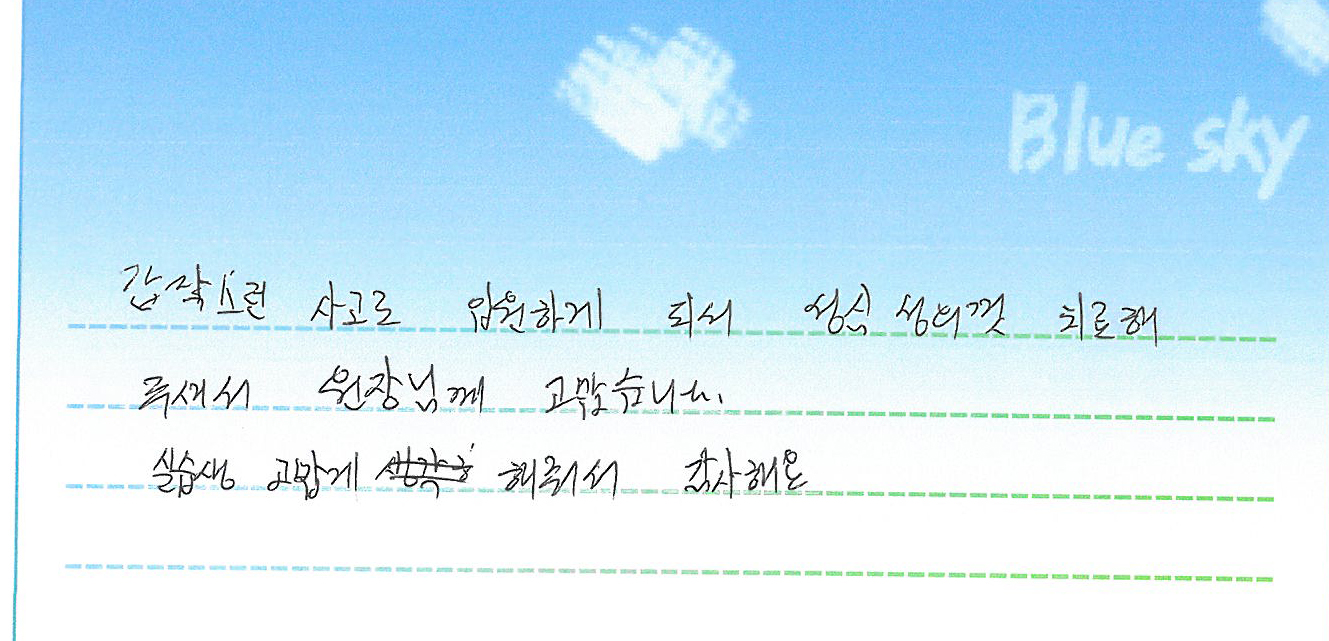 Blue sky
갑작스런 사고로 입원하게 되서 성심 성의껏 치료해
주셔서 원장님께 고맙습니다.
실습생 고맙게 해줘서 감사해요